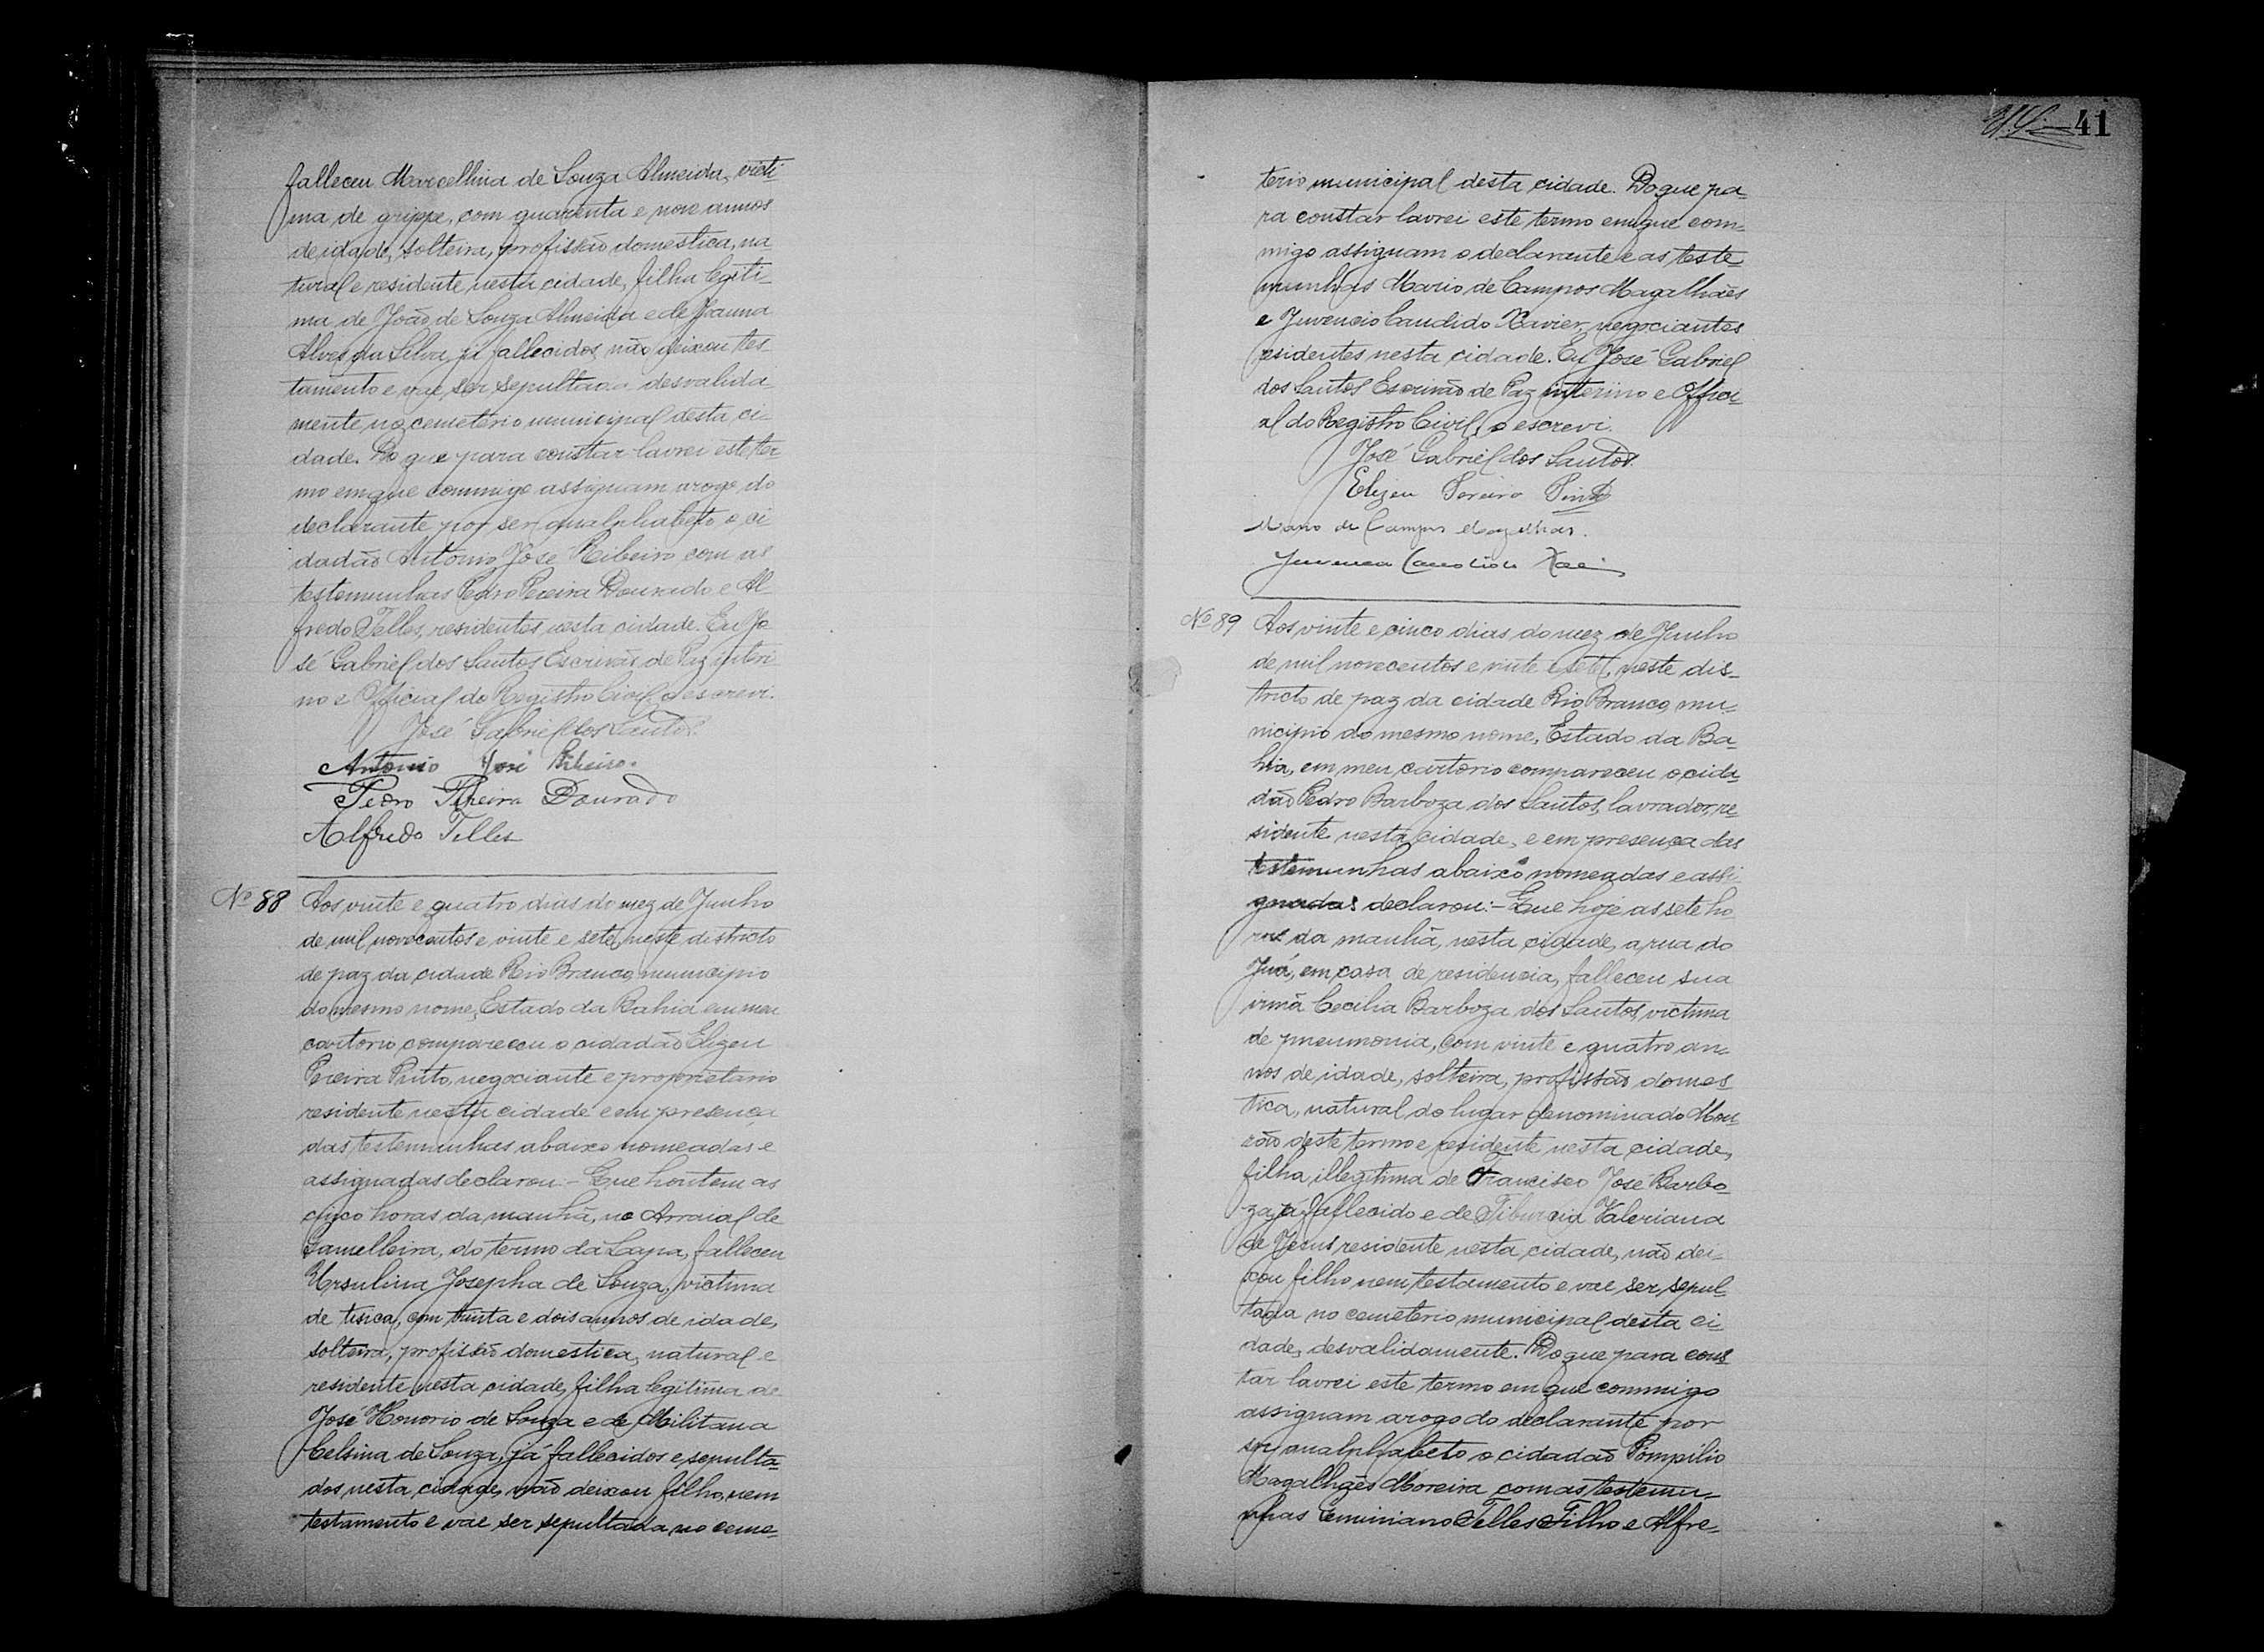 falleceu Marcellina de Souza Almeida, victi-
ma de grippe, com quarenta e nove annos
de idade, solteira, profissão domestica, na
tural e residente nesta cidade, filha legiti-
ma de João de Souza Almeida e de Joanna
Alves da Silva, já fallecidos, não deixou tes-
tamento e vae ser sepultada desvalida-
mente no cemeterio municipal desta ci-
dade. Do que para constar lavrei este ter-
mo em que commigo assignam arogo do
declarante por ser analphabeto, o ci
dadão Antonio José Ribeiro com as
testemunhas Pedro Pereira Dourado e Al-
fredo Telles, residentes nesta cidade. Eu Jo
sé Gabriel dos Santos Escrivão de Paz interi
no e Official do Registro Civil o escrevi.
José Gabriel dos Santos.
Antonio José Ribeiro.
Pedro Pereira Dourado
Alfredo Telles
Nº 88 Aos vinte e quatro dias do mez de Junho
de mil novecentos e vinte e sete, neste districto
de paz da cidade Rio Branco, municipio
do mesmo nome, Estado da Bahia em meu
cartorio compareceu o cidadão Elizeu
Pereira Pinto, negociante e proprietario
residente nesta cidade e em presença
das testemunhas abaixo nomeadas e
assignadas declarou:- Que hontem as
cinco horas da manhã, no Arraial de
Gamelleira, do termo da Lapa, falleceu
Ursulina Josepha de Souza, victima
de tisica, com trinta e dois annos de idade,
solteira, profissão domestica, natural e
residente nesta cidade, filha legitima de
José Honorio de Souza e de Militana
Celsina de Souza, já fallecidos e sepulta-
dos nesta cidade, não deixou filho, nem
testamento e vae ser sepultada no ceme-
41
terio municipal desta cidade. Do que pa-
ra constar lavrei este termo em que com-
migo assignam o declarante e as teste-
munhas Mario de Campos Magalhães
e Juvencio Candido Xavier, negociantes
residentes nesta cidade. Eu José Gabriel
dos Santos Escrivão de Paz interino e Offici-
al do Registro Civil, o escrevi.
José Gabriel dos Santos.
Elizeu Pereira Pinto
Mario de Campos Magalhães.
Juvencio Candido Xavier
Nº 89 Aos vinte e cinco dias do mez de Junho
de mil novecentos e vinte e sete, neste dis-
tricto de paz da cidade Rio Branco, mu-
nicipio do mesmo nome, Estado da Ba-
hia, em meu cartorio compareceu o cida-
dão Pedro Barboza dos Santos, lavrador, re-
sidente nesta cidade, e em presença das
testemunhas abaixo nomeadas e assi
gnadas declarou:- Que hoje as sete ho
ras da manhã, nesta cidade, a rua do
Juá, em casa de residencia, falleceu sua
irmã Cecilia Barboza dos Santos, victima
de pneumonia, com vinte e quatro an-
nos de idade, solteira, profissão domes
tica, natural do lugar denominado Mou
rão deste termo e residente nesta cidade,
filha illegitima de Francisco José Barbo-
za já fallecido e de Tiburcia Valeriana
de Jesus residente nesta cidade, não dei-
xou filho nem testamento e vae ser sepul-
tada no cemeterio municipal desta ci-
dade, desvalidamente. Do que para cons
tar lavrei este termo em que commigo
assignam arogo do declarante por
ser analphabeto o cidadão Pompilio
Magalhães Moreira com as testemu-
nhas Geminiano Telles Filho e Alfre-